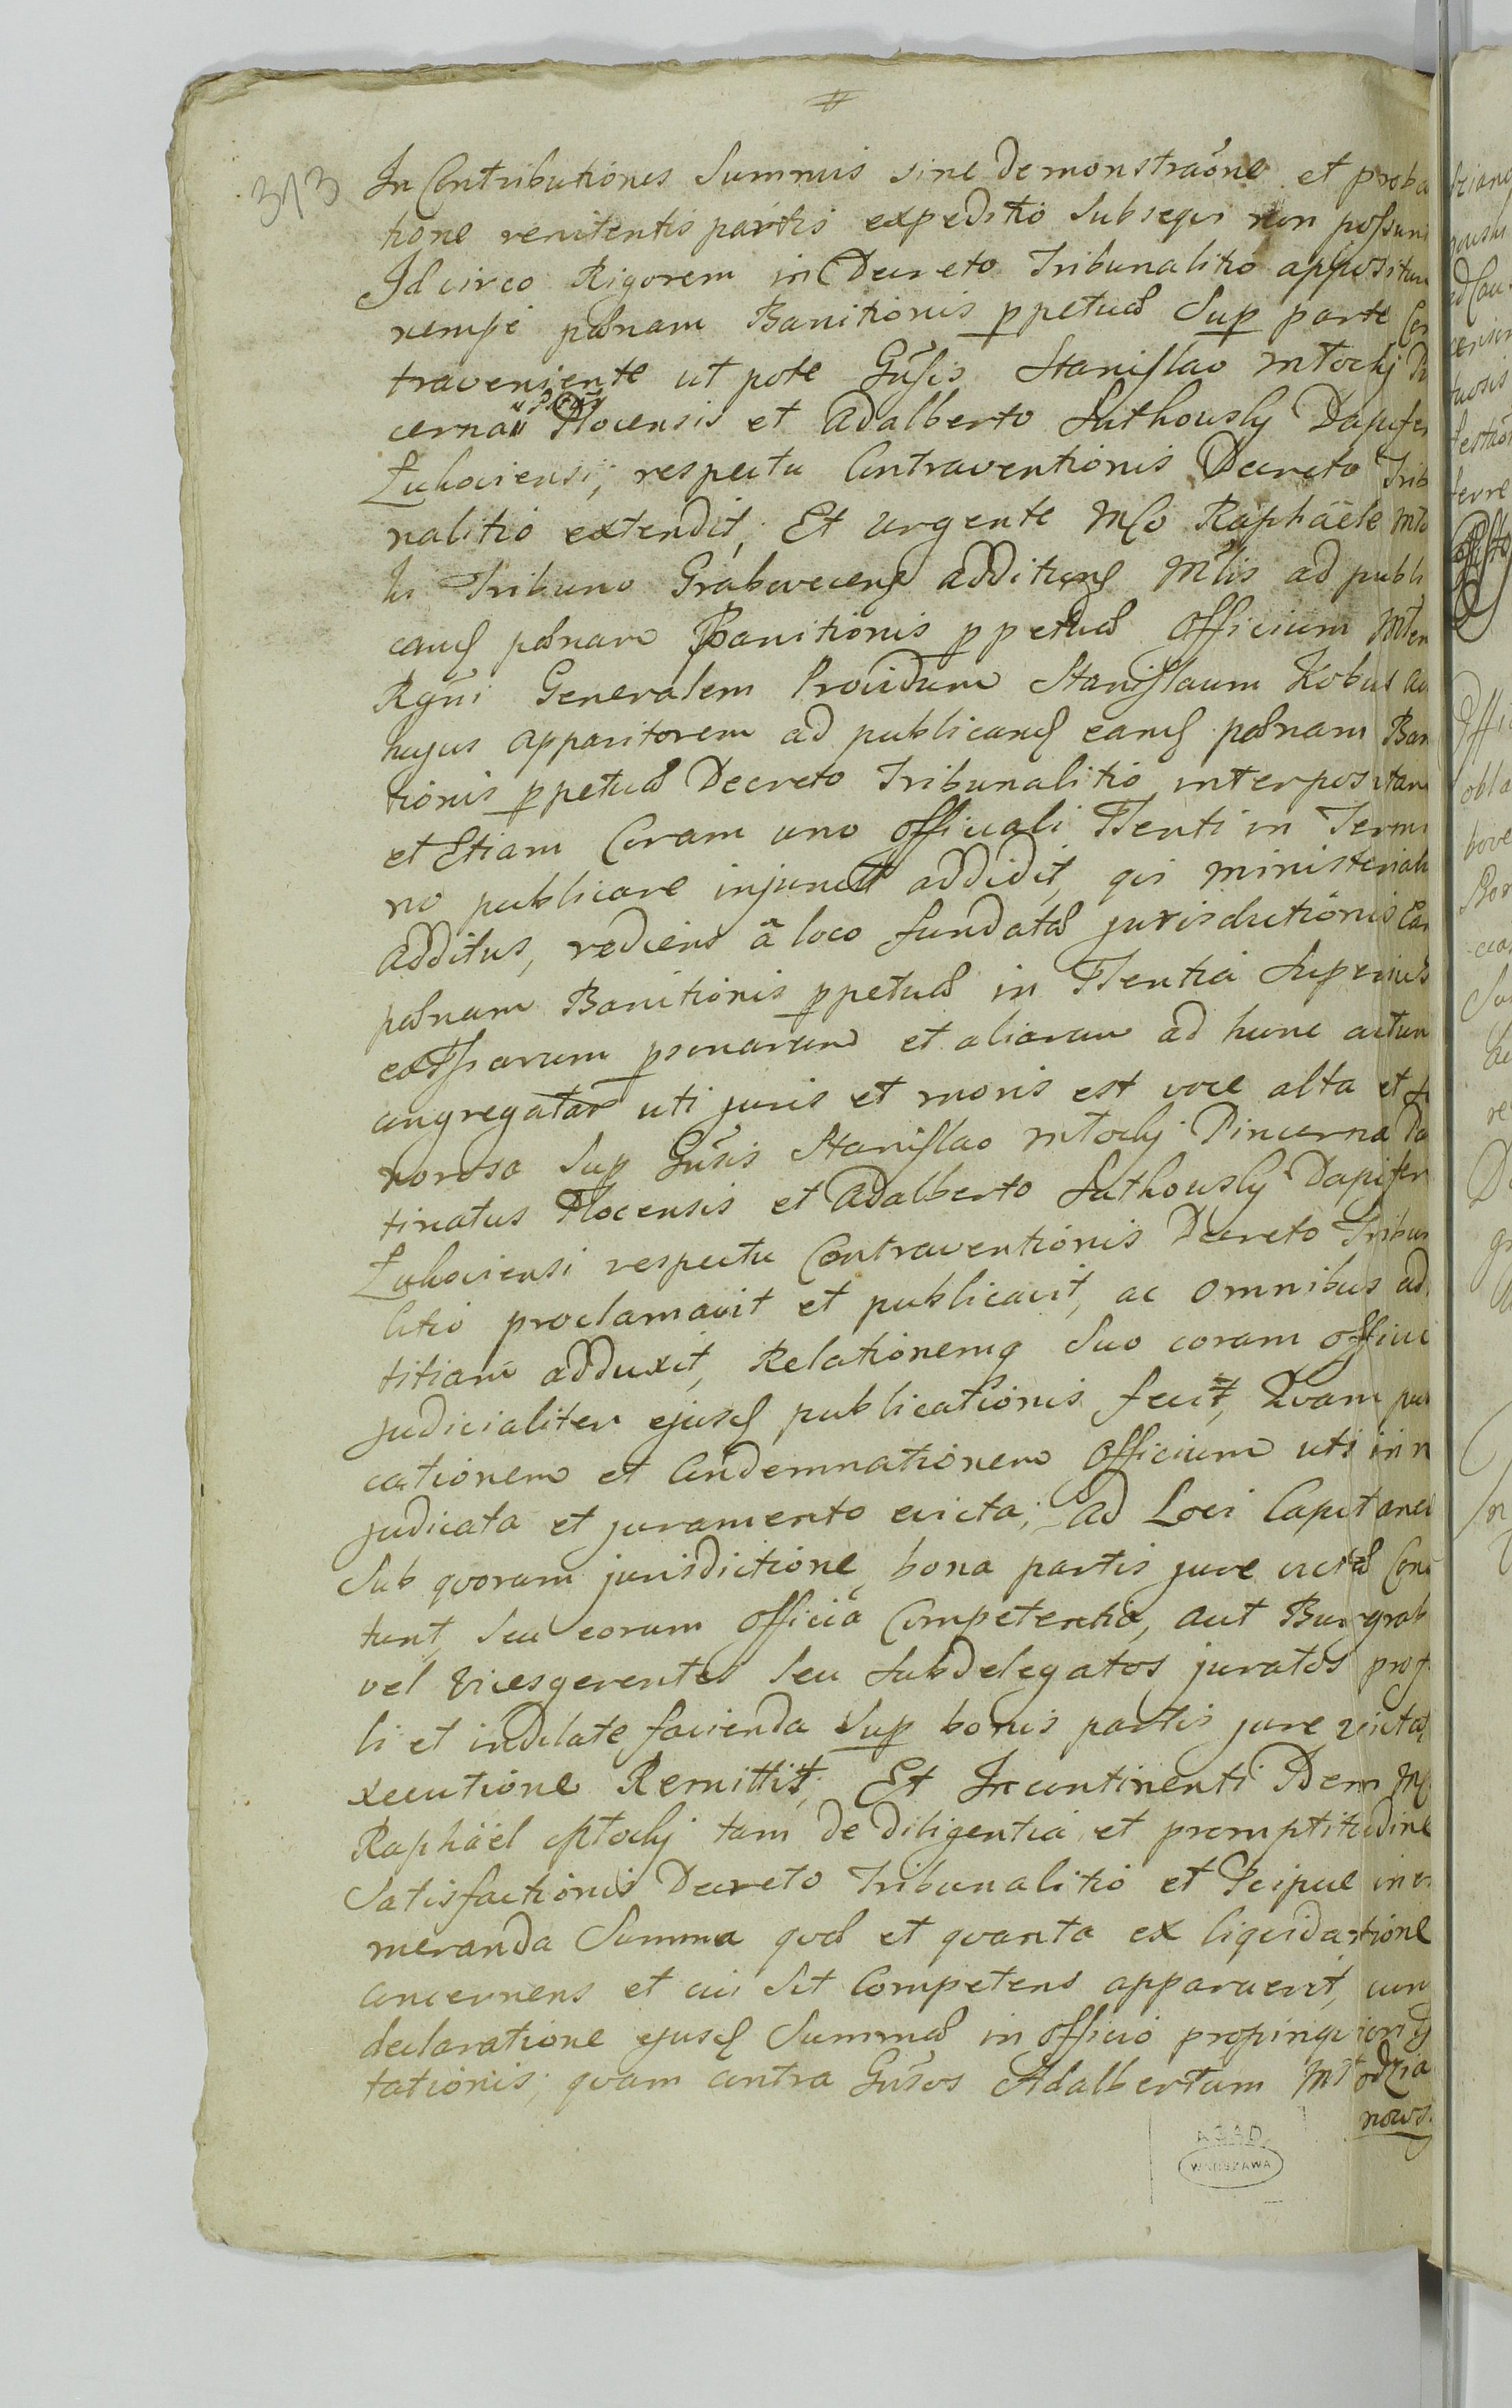 #
313
In Contributiones Summis sine demonstraõne et proba
tione renitentis partis expeditio subsequi non possunt
Idcirco Rigorem in Decreto Tribunalitio appositum
nempe pænam Banitionis ppetuæ Sup parte Con
traveniente ut pote Gñsis Stanislao Młocki Pin
cerna Plocensis et Adalberto Suthousky Dapifer
Łukoviensi, respectu Contraventionis Decreto Trib
nalitio extendit, Et urgente Mco Raphäele Mło
ki Tribuno Graboveceñ additionẽ Mlis ad publi
canđ pænam Banitionis ppetuæ Officium Mtem
Rgni Generalem Providum Stanislaum Kobus ac
hujus apparitorem ad publicanđ eanđ pænam Bani
tionis ppetuæ Decreto Tribunalitio interpositam
et Etiam Coram uno officiali Ttenti in Termi
no publicare injunctt addidit, qui ministerialis
additus, rediens â loco fundatæ jurisdictionis Ean
pænam Banitionis ppetuæ in Ttentia Superius
exttsarum psonarum et aliarum ad hunc actum
congregatar uti juris et moris est voce alta et so
norosa Sup Gñsis Stanislao Młocki Pincerna Pa
tinatus Plocensis et Adalberto Suthousky Dapifer
Łukoviensi respectu Contraventionis Decreto Tribun
litio proclamavit et publicavit, ac omnibus ad
titiam adduxit, Relationemq Suo coram officio
judicialiter ejusđ publicationis fecit, Quam pu
cationem et Condemnationem Officium uti in r
judicata et juramento evicta, ad Loci Capitane
Sub quorum jurisdictione bona partis jure victæ Con
tunt, seu eorum officia Competentia, aut Burgrab
vel Vicesgerentes seu Subdelegatos juratos prof
li et indilate facienda Sup bonis partis jure victæ
xecutione Remittit, Et In continenti Idem Mcus
Raphäel Młocki tam de diligentia et promptitudine
Satisfactionis Decreto Tribunalitio et Pcipue in e
meranda Summa quæ et quanta ex liquidatione
concernens et cui sit Competens apparuerit, cum
declaratione ejusđ Summæ in officio propinquioris
tationis, quam contra Gñsos Adalbertum Młodzia
nows.
AGAD
WARSZAWA